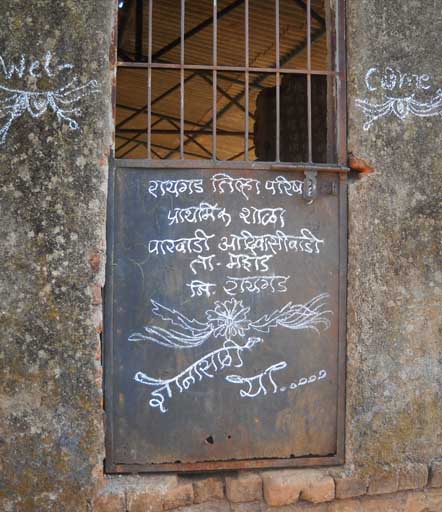 Wel-
Come
रायगड जिल्हा परिषद
प्राथमिक शाळा
पारवाडी आदिवासीवाडी
ता. महाड
जि. रायगड
ज्ञानासाठी
या.....